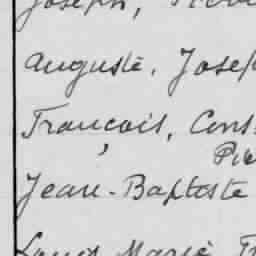 Joseph,
Auguste, Josep
Francois, Cons
Pie
Jean-Baptiste
Louis Marie